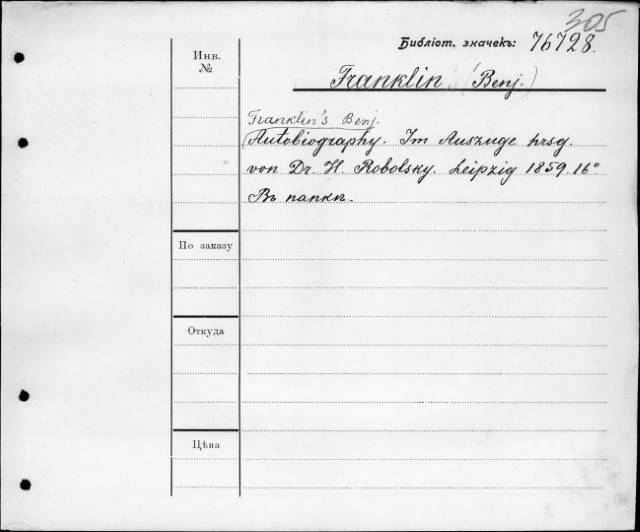 305
Библіот. значекъ: 76728.
Инв.
№
Franklin (Benj.)
Franklin's Benj.
Autobiography. Im Auszuge hrsg.
von Dr. H. Robolsky. Leipzig 1859. 16°
Въ папкѣ.
По заказу
Откуда
Цѣна